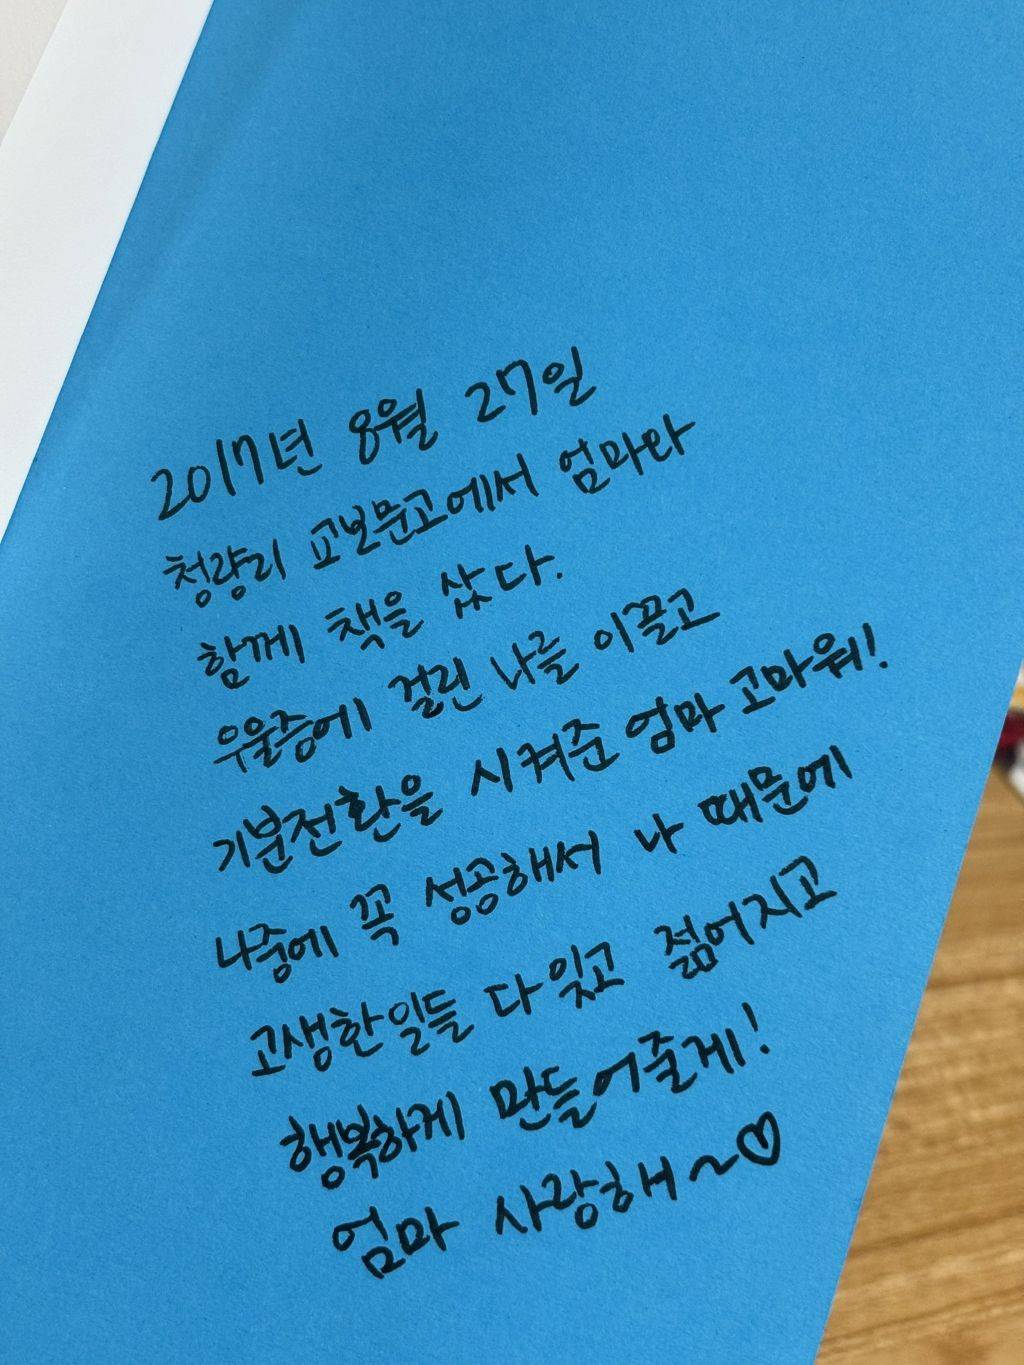 2017년 8월 27일
청량리 교보문고에서 엄마랑
함께 책을 샀다.
우울증에 걸린 나를 이끌고
기분전환을 시켜준 엄마 고마워!
나중에 꼭 성공해서 나 때문에
고생한일들 다 잊고 젊어지고
행복하게 만들어줄게!
엄마 사랑해~♡